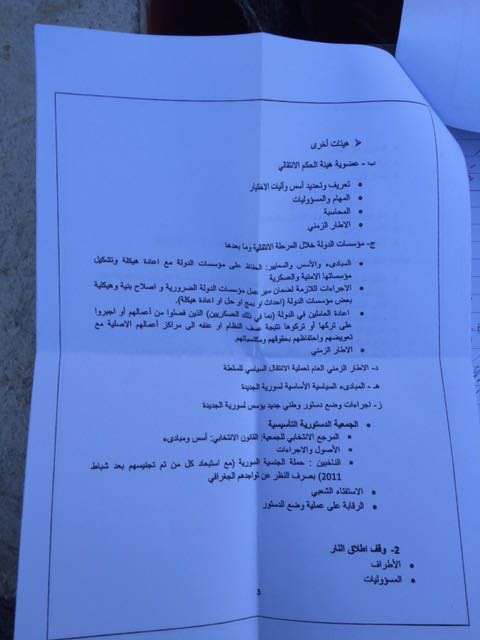 ➤ هيئات أخرى
ب - عضوية هيئة الحكم الانتقالي
• تعريف وتحديد أسس وآليات الاختيار
• المهام والمسؤوليات
• المحاسبة
• الاطار الزمني
ج- مؤسسات الدولة خلال المرحلة الانتقالية وما بعدها
• المبادىء والأسس والمعايير: الحفاظ على مؤسسات الدولة مع اعادة هيكلة وتشكيل
مؤسساتها الامنية والعسكرية
• الاجراءات اللازمة لضمان سير عمل مؤسسات الدولة الضرورية و اصلاح بنية وهيكلية
بعض مؤسسات الدولة (احداث او دمج او حل او اعادة هيكلة).
• اعادة العاملين في الدولة (بما في ذلك العسكريين) الذين فصلوا من أعمالهم أو اجبروا
على تركها أو تركوها نتيجة عسف النظام او عنفه الى مراكز أعمالهم الاصلية مع
تعويضهم واحتفاظهم بحقوقهم ومكتسباتهم.
• الاطار الزمني
د- الاطار الزمني العام لعملية الانتقال السياسي للسلطة
هـ - المبادىء السياسية الأساسية لسورية الجديدة
ز- اجراءات وضع دستور وطني جديد يؤسس لسورية الجديدة
• الجمعية الدستورية التأسيسية
▪ المرجع الانتخابي للجمعية: القانون الانتخابي: أسس ومبادىء
▪ الأصول والاجراءات
▪ الناخبين : حملة الجنسية السورية (مع استبعاد كل من تم تجنيسهم بعد شباط
2011) بصرف النظر عن تواجدهم الجغرافي
• الاستفتاء الشعبي
• الرقابة على عملية وضع الدستور
2- وقف اطلاق النار
• الأطراف
• المسؤوليات
3